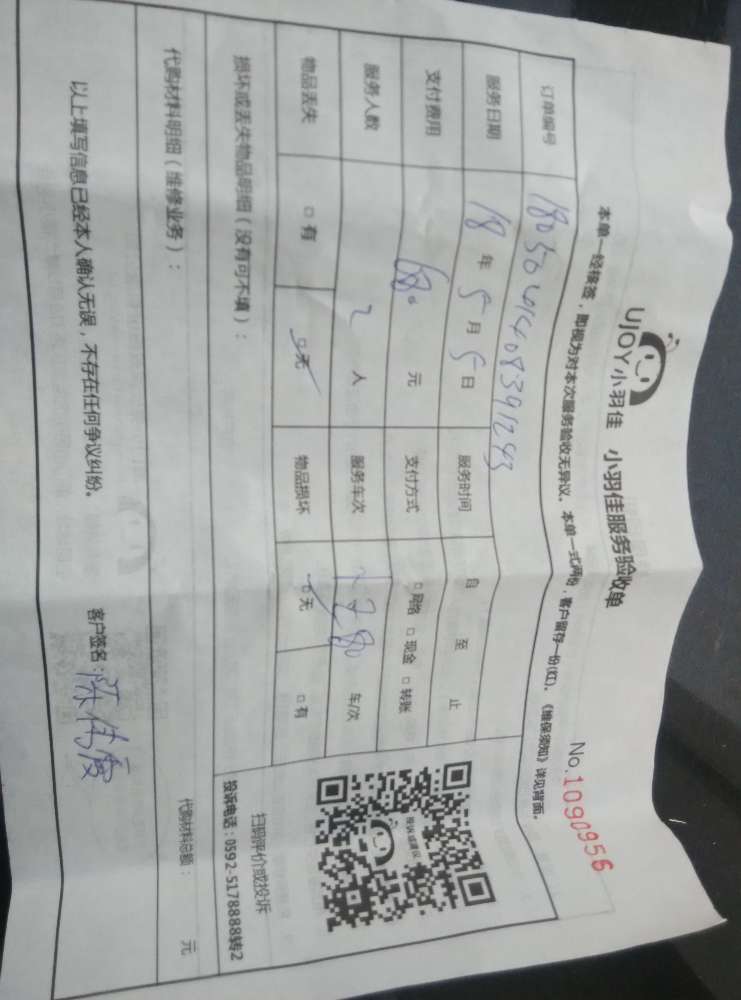 UJOY小羽佳 小羽佳服务验收单
No.1090956
本单一经接签，即视为对本次服务验收无异议，本单一式两份，客户留存一份(红)，《维保须知》详见背面。
订单编号
服务日期 18年5月5日 服务时间 自 至 止
支付费用 680元 支付方式 □网络 □现金 □转账
服务人数 2人 服务车次 车/次
物品丢失 □有 □无 物品损坏 □无 □有
投诉或建议
扫码评价或投诉
投诉电话：0592-5178888转2
损坏或丢失物品明细（没有可不填）：
代购材料明细（维修业务）： 代购材料总额： 元
以上填写信息已经本人确认无误，不存在任何争议纠纷。 客户签名：